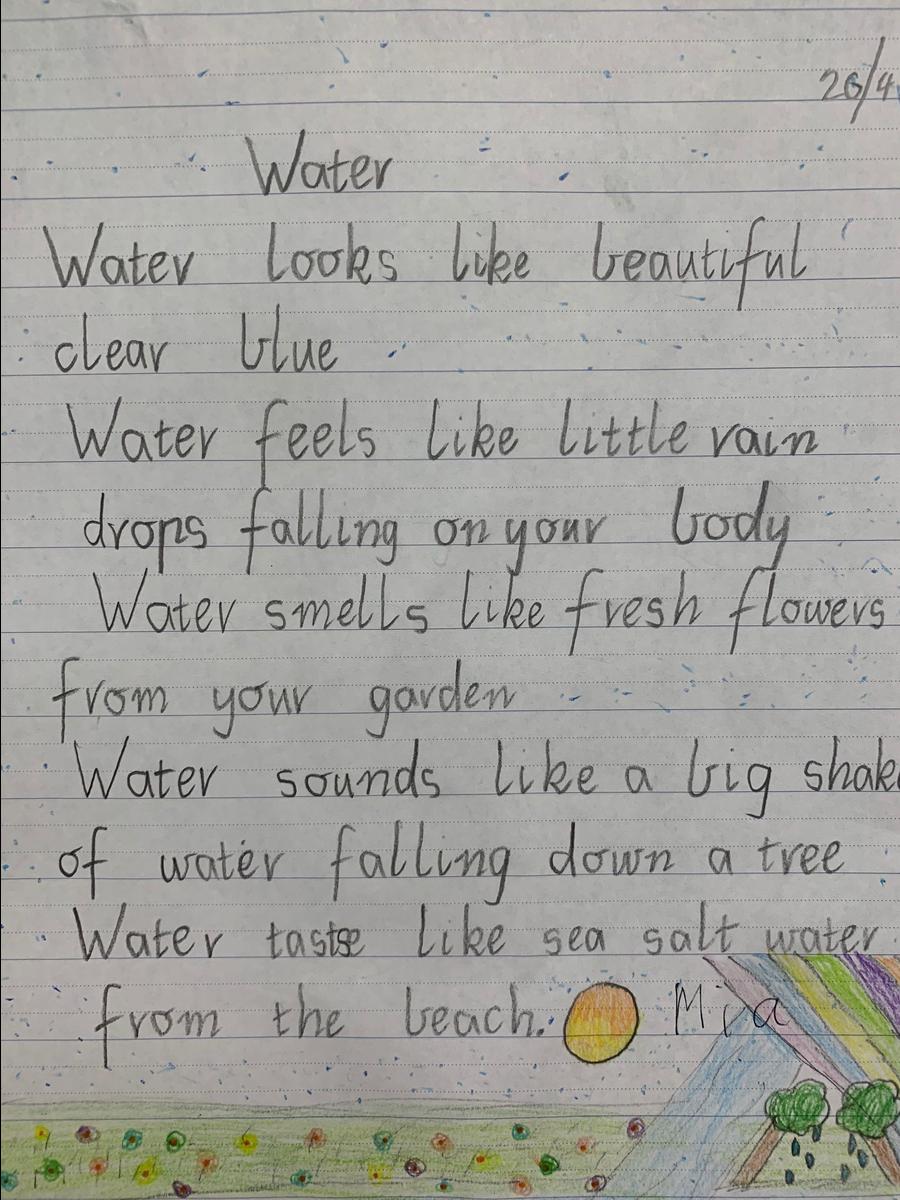 26/4
Water
Water looks like beautiful
clear blue
Water feels like little rain
drops falling on your body
Water smells like fresh flowers
from your garden
Water sounds like a big shake
of water falling down a tree
Water like sea salt water
from the beach. Mia